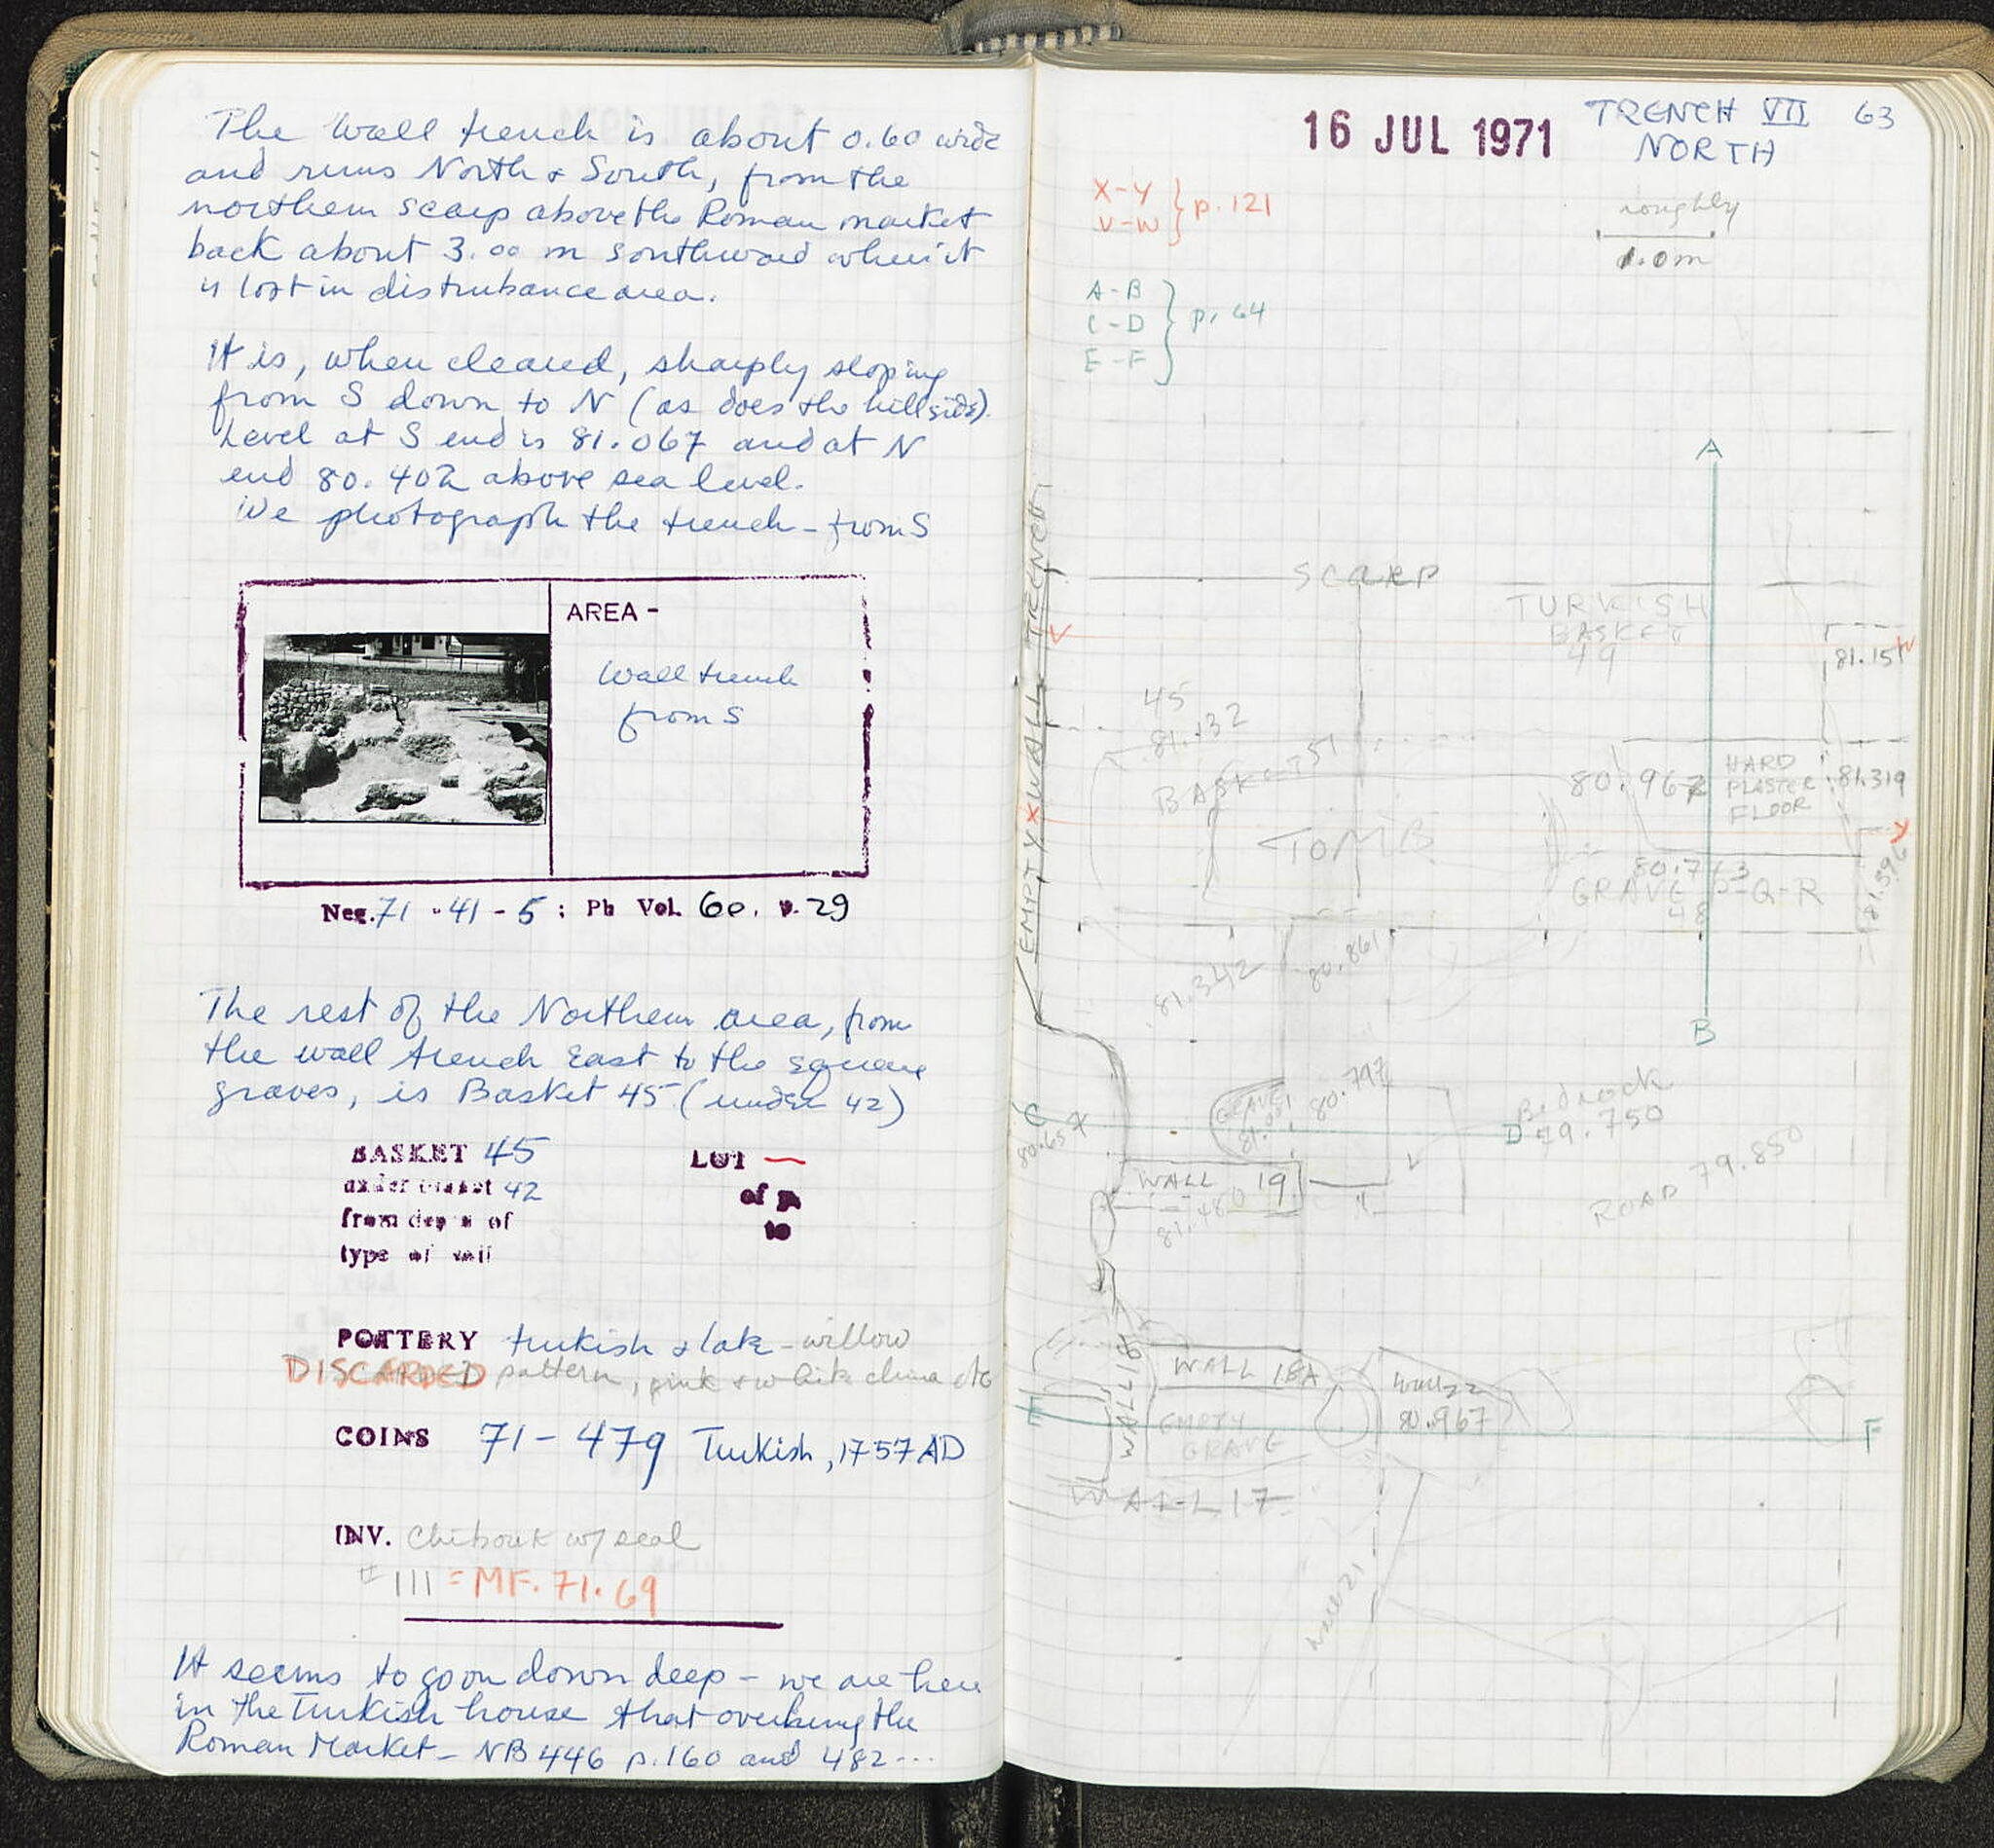 The wall trench is about 0.60 wide
and runs North & South, from the
northern scarp above the Roman market
back about 3.00 m southward when it
is lost in disturbance area.
It is, when cleared, sharply sloping
from S down to N (as does the hillside).
Level at S end is 81.067 and at N
end 80.402 above sea level.
We photograph the trench - from S
AREA -
Wall trench
from S
Neg. 71 - 41 - 5 ; Ph Vol. 60. p. 29
The rest of the Northern area, from
the wall trench East to the square
graves, is Basket 45 (under 42)
BASKET 45
under basket 42
from depth of
type of soil
LOT —
of
to
POTTERY turkish & late - willow
DISCARDED pattern, pink & white china etc
COINS 71 - 479 Turkish, 1757 AD
INV. Chibouk w/ seal
# 111 = MF. 71. 69
It seems to go on down deep - we are here
in the Turkish house that overhung the
Roman Market - NB 446 p. 160 and 482 ...
16 JUL 1971
TRENCH VII 63
NORTH
X-Y
V-W } p. 121
roughly
1.0m
A-B
C-D } p. 64
E-F
A
SCARP
TURKISH
BASKET
49
V
W
81.151
45
81.132
BASKET 51
80.967
HARD
PLASTER
FLOOR
81.319
EMPTY WALL TRENCH
X
Y
TOMB
80.743
GRAVE P-Q-R
48
81.596
81.342
80.861
B
C
80.657
GRAVE
80.797
D
Bedrock
79.750
ROAD 79.850
WALL 19
81.480
WALL 18
WALL 18A
Wall 22
80.967
E
EMPTY
GRAVE
F
WALL 17
Wall 21